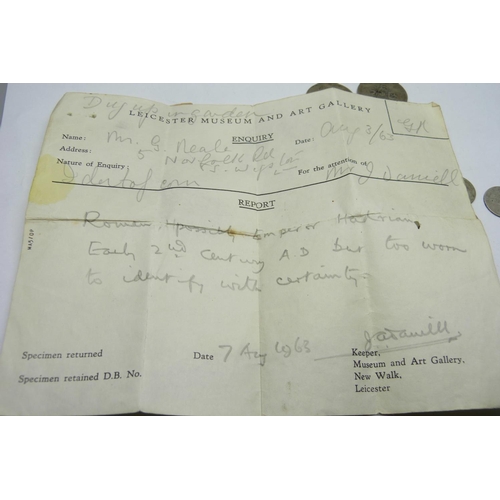 Dug up in Garden
LEICESTER MUSEUM AND ART GALLERY
GR
ENQUIRY
Name: Mr. G Neale Date: Aug 3/63
Address: 5 Norfolk Rd
Nature of Enquiry: For the attention of
Ident of coin Mr J Daniell
REPORT
Roman, possibly Emperor Hadrian,
Early 2nd Century A.D but too worn
to identify with certainty.
Specimen returned Date 7 Aug 1963 Keeper,
Specimen retained D.B. No. Museum and Art Gallery,
New Walk,
Leicester